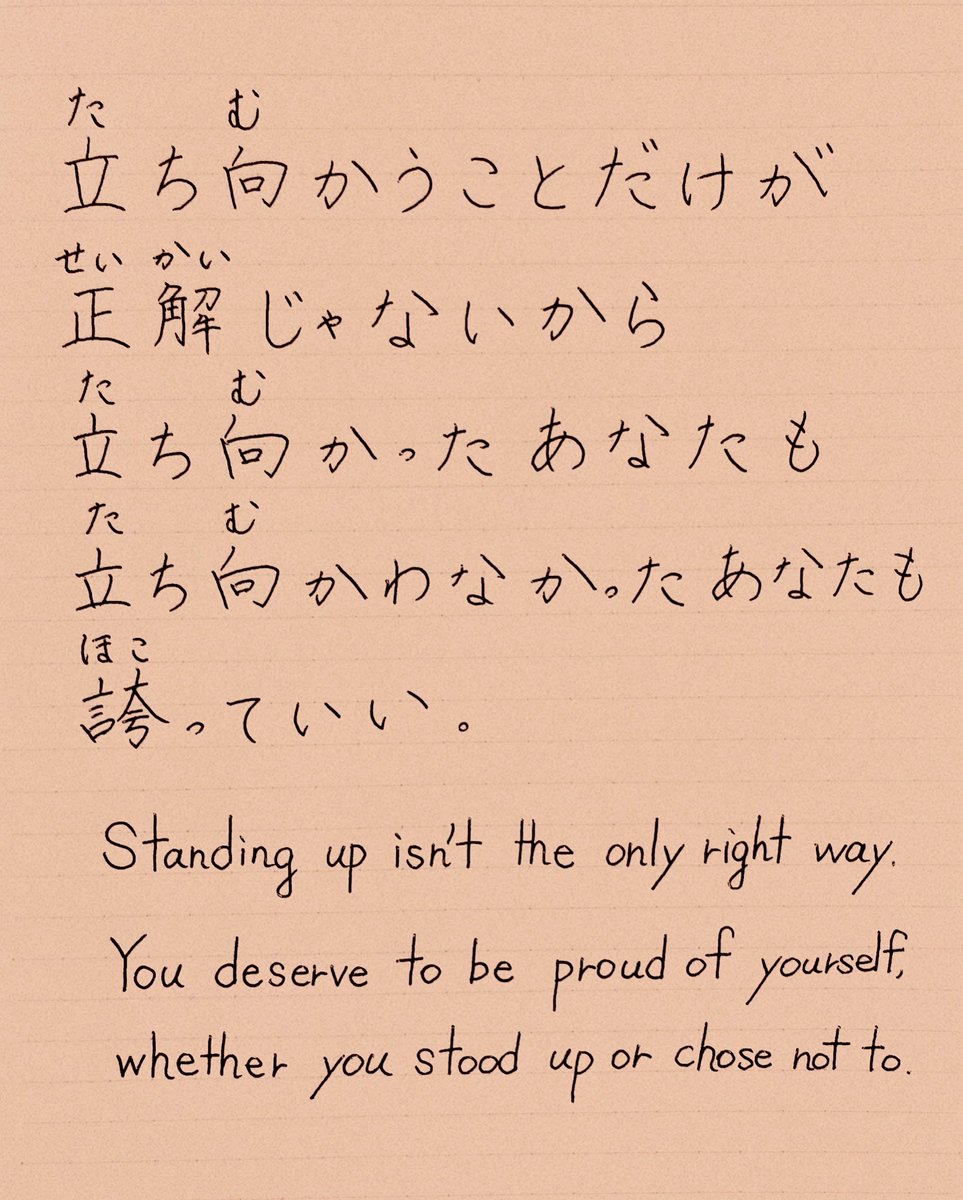 た む
立ち向かうことだけが
せい かい
正解じゃないから
た む
立ち向かった あなたも
た む
立ち向かわなかった あなたも
ほこ
誇っていい。
Standing up isn't the only right way.
You deserve to be proud of yourself,
whether you stood up or chose not to.